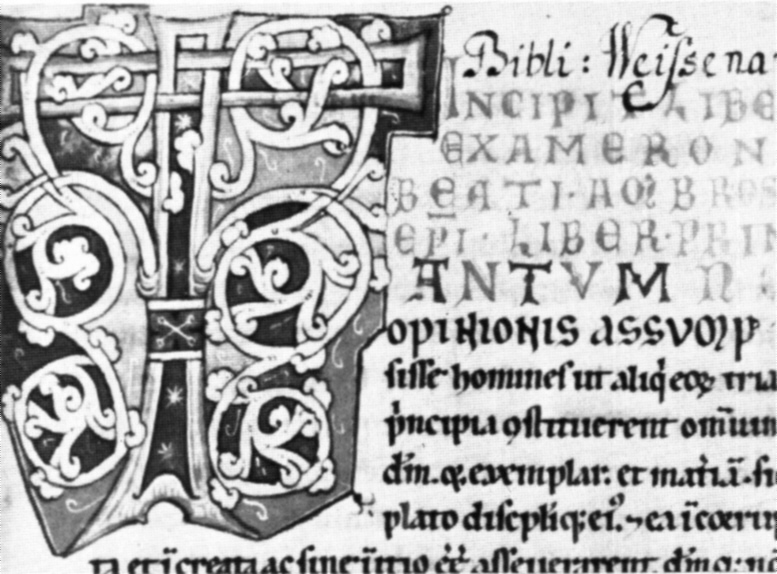 Bibli: Weissena
INCIPIT LIBE
EXAMERON
BEATI·AOBROS
EPI·LIBER·PRIN
TANTUM NA
OPINIONIS ASSVOP
sisse homines ut aliq eoꝝ tria
pncipia ꝯstituerent omium
dm. ⁊ exemplar. et matiā·si
plato discpliq; ei᷒.⁊ ea icoerup
ta et icreata ac sine itio ee asseuerarent. dm q;